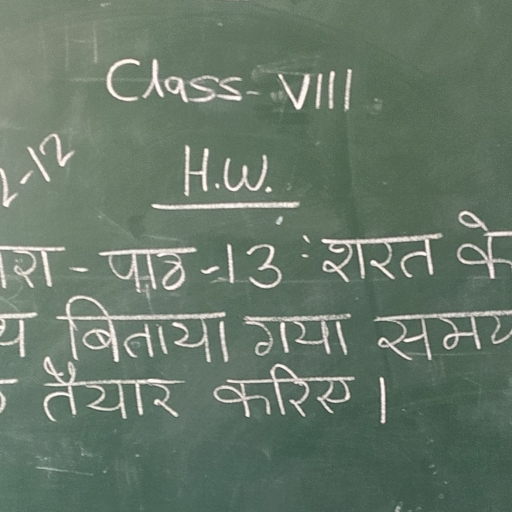 Class- VIII
2-12
H.W.
रा - पाठ -13 : शरत के
बिताया गया समय
तैयार करिए ।